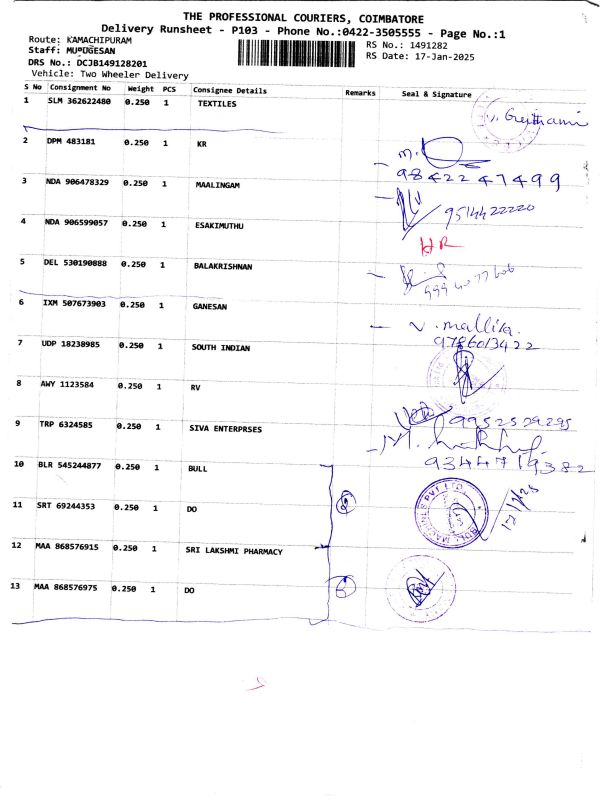 THE PROFESSIONAL COURIERS, COIMBATORE
Delivery Runsheet - P103 - Phone No.:0422-3505555 - Page No.:1
Route: KAMACHIPURAM
Staff: MURUGESAN
RS No.: 1491282
RS Date: 17-Jan-2025
DRS No.: DCJB149128201
Vehicle: Two Wheeler Delivery
S No Consignment No Weight PCS Consignee Details Remarks Seal & Signature
1 SLM 362622480 0.250 1 TEXTILES
2 DPM 483181 0.250 1 KR
9842247499
3 NDA 906478329 0.250 1 MAALINGAM
9514422220
4 NDA 906599057 0.250 1 ESAKIMUTHU
HR
5 DEL 530190888 0.250 1 BALAKRISHNAN
6 IXM 507673903 0.250 1 GANESAN
v. mallika.
9786013422
7 UDP 18238985 0.250 1 SOUTH INDIAN
8 AWY 1123584 0.250 1 RV
9952529295
9 TRP 6324585 0.250 1 SIVA ENTERPRSES
9344719382
10 BLR 545244877 0.250 1 BULL
11 SRT 69244353 0.250 1 DO
17/1/25
12 MAA 868576915 0.250 1 SRI LAKSHMI PHARMACY
13 MAA 868576975 0.250 1 DO